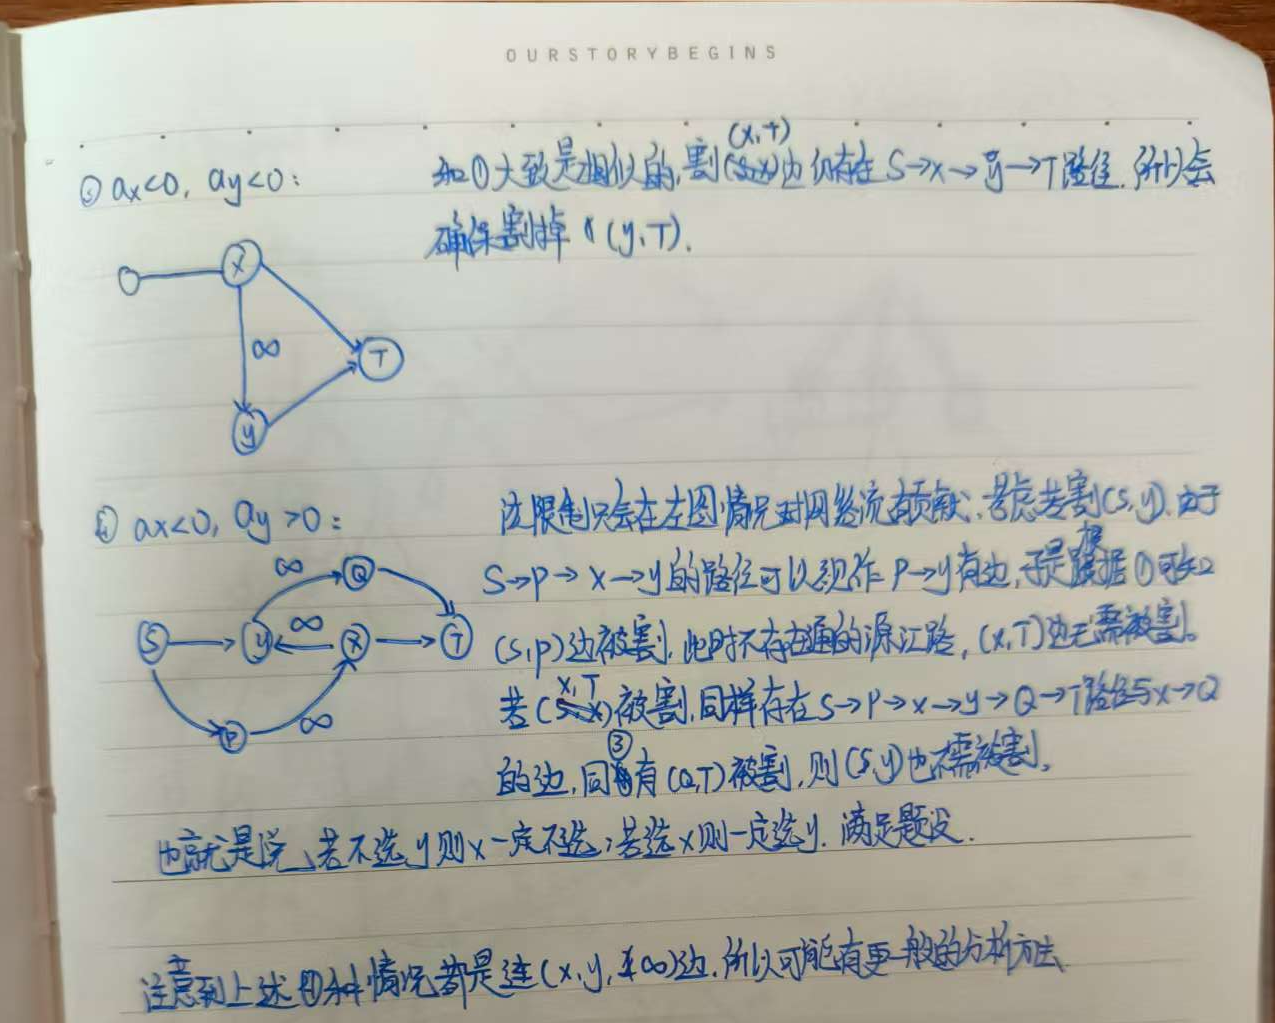 OURSTORYBEGINS
③ ax<0, ay<0:
和①大致是相似的,割(x,T)边仍存在 S→x→y→T路径.所以会
确保割掉 (y,T).
x
∞
T
y
④ ax<0, ay>0:
这限制只会在左图情况对网络流有贡献.考虑若割(S,y),由于
S→P→x→y的路径可以视作 P→y有边,于是根据①可知
(S,P)边被割,此时不存在通的源汇路,(x,T)边无需被割。
若(x,T)被割,同样存在S→P→x→y→Q→T路径与x→Q
的边,同③有(Q,T)被割,则(S,y)也不需被割。
∞ Q
S y ∞ x T
P ∞
也就是说,若不选y则x一定不选;若选x则一定选y.满足题设.
注意到上述④种情况都是连(x,y,+∞)边.所以可能有更一般的分析方法.